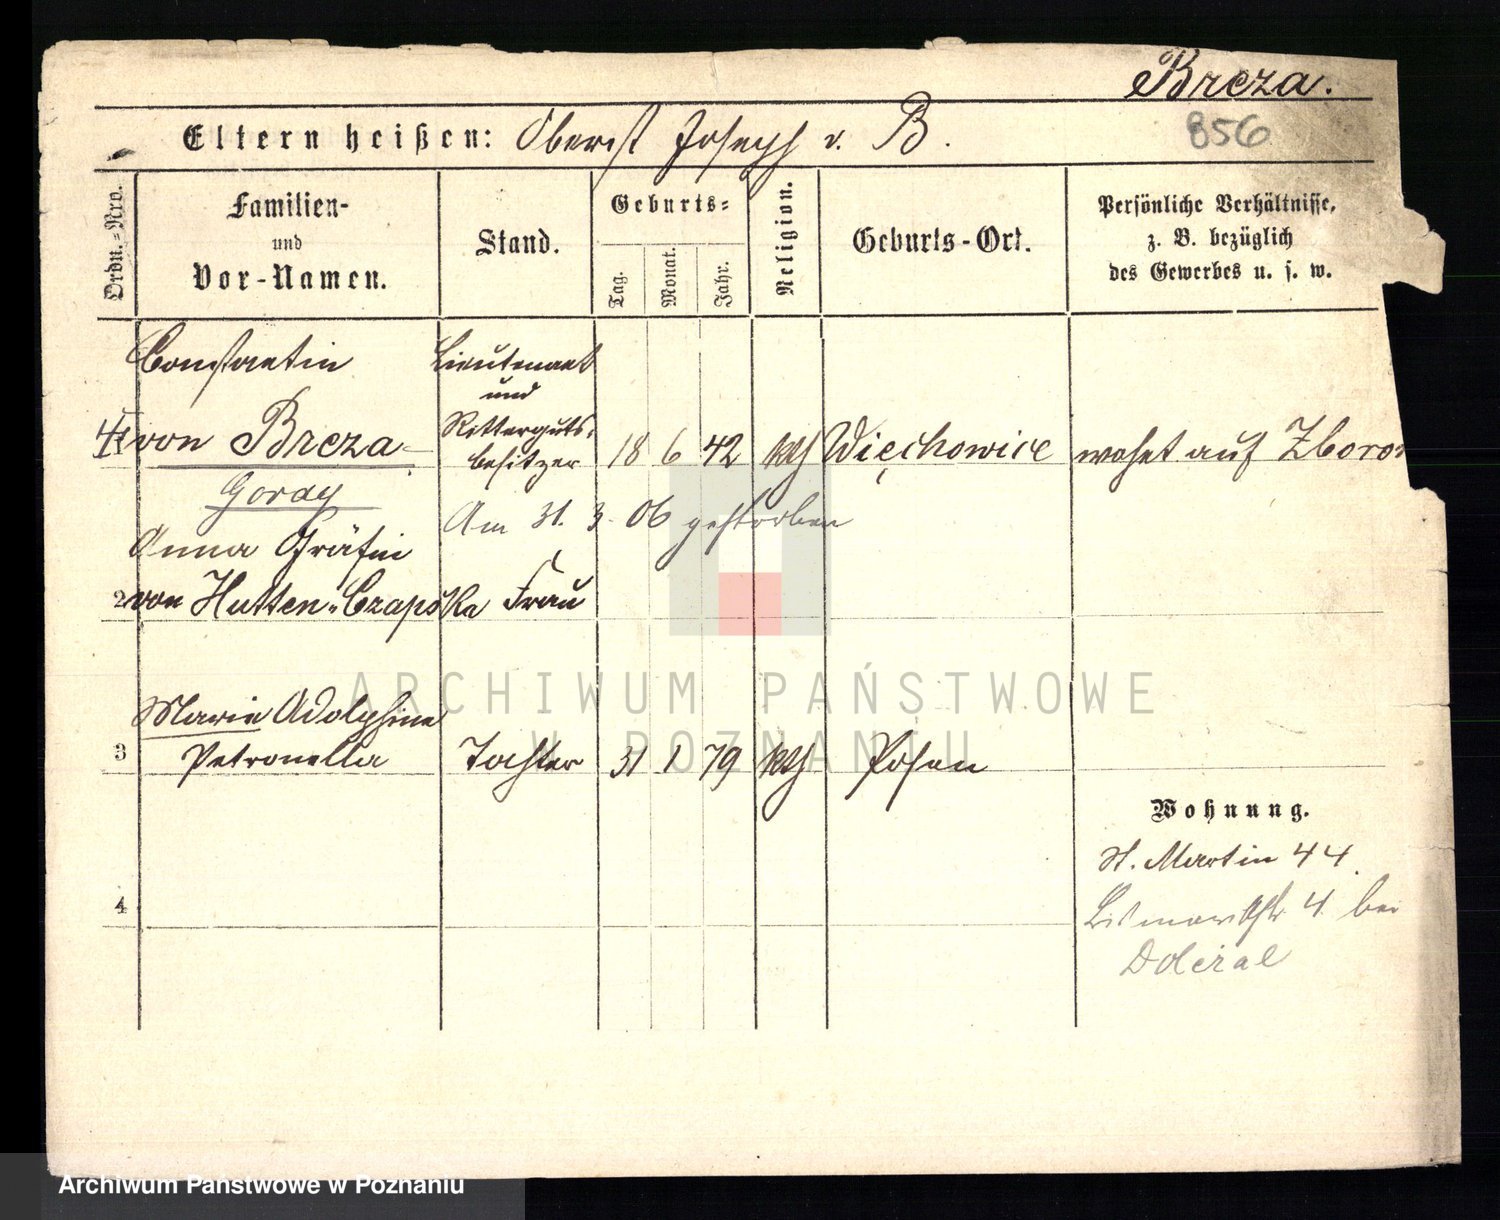 Breza.
856
Eltern heißen: Oberst Joseph v. B.
Ordn.-Nro.
Familien-
und
Vor-Namen.
Stand.
Geburts-
Tag.
Monat.
Jahr.
Religion.
Geburts-Ort.
Persönliche Verhältnisse,
z. B. bezüglich
des Gewerbes u. s. w.
Constantin
von Breza-
Goray
Lieutenant
und
Ritterguts-
besitzer
18 6 42 kth Więckowice wohnt auf
Am 31. 3. 06 gestorben
Anna Gräfin
2 von Hutten-Czapska Frau
Marie Adolphine
3 Petronella Tochter 31 1 79 kth Posen
4
Wohnung.
St. Martin 44.
Bismarckstr 4 bei
Doleżal
ARCHIWUM PAŃSTWOWE
W POZNANIU
Archiwum Państwowe w Poznaniu